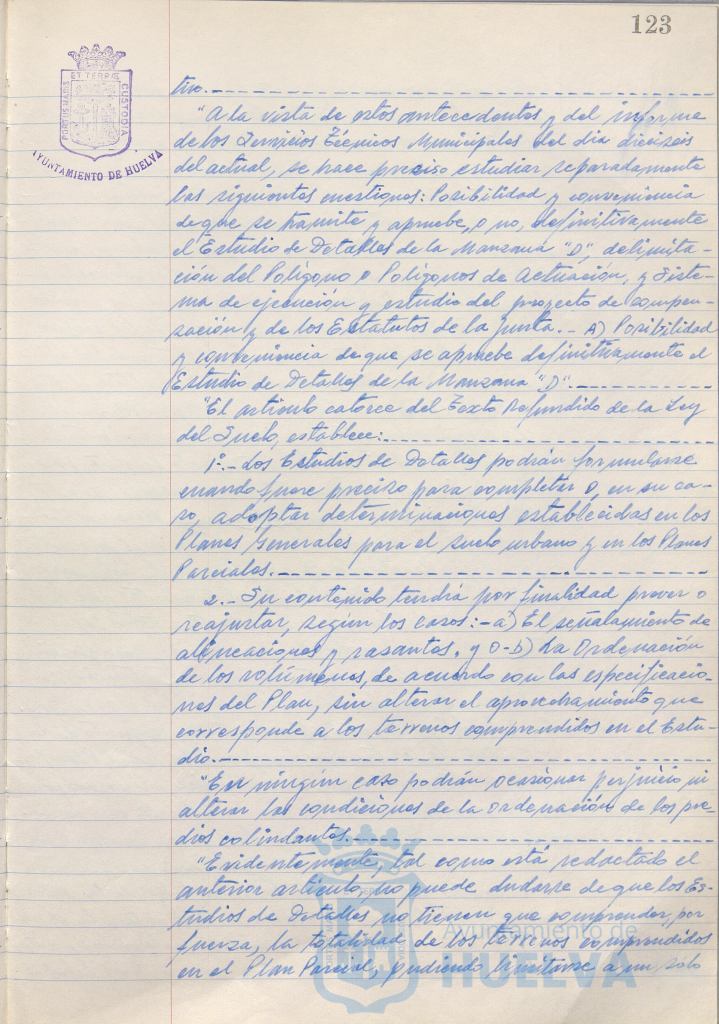 123
PORTUS MARIS ET TERRÆ CUSTODIA
AYUNTAMIENTO DE HUELVA
tivo.
"A la vista de estos antecedentes y del informe
de los Servicios Técnicos Municipales del dia dieciseis
del actual, se hace preciso estudiar separadamente
las siguientes cuestiones: Posibilidad y conveniencia
de que se tramite y apruebe, o no, definitivamente
el Estudio de Detalles de la Manzana "D", delimita-
ción del Polígono o Polígonos de Actuación, y Siste-
ma de ejecución y estudio del proyecto de compen-
sación y de los Estatutos de la junta.- A) Posibilidad
y conveniencia de que se apruebe definitivamente el
Estudio de Detalles de la Manzana "D".
"El artículo catorce del Texto Refundido de la Ley
del Suelo, establece:
1º.- Los Estudios de Detalles podrán formularse
cuando fuere preciso para completar o, en su ca-
so, adoptar determinaciones establecidas en los
Planes Generales para el suelo urbano y en los Planes
Parciales.
2.- Su contenido tendrá por finalidad prever o
reajustar, según los casos:- a) El señalamiento de
alineaciones y rasantes, y o- b) La Ordenación
de los volúmenes, de acuerdo con las especificacio-
nes del Plan, sin alterar el aprovechamiento que
corresponde a los terrenos comprendidos en el Estu-
dio.
"En ningún caso podrán ocasionar perjuicio ni
alterar las condiciones de la ordenación de los pre-
dios colindantes.
"Evidentemente, tal como está redactado el
anterior artículo, no puede dudarse de que los Es-
tudios de Detalles, no tienen que comprender, por
fuerza, la totalidad de los terrenos comprendidos
en el Plan Parcial, pudiendo limitarse a un solo
Ayuntamiento de
HUELVA